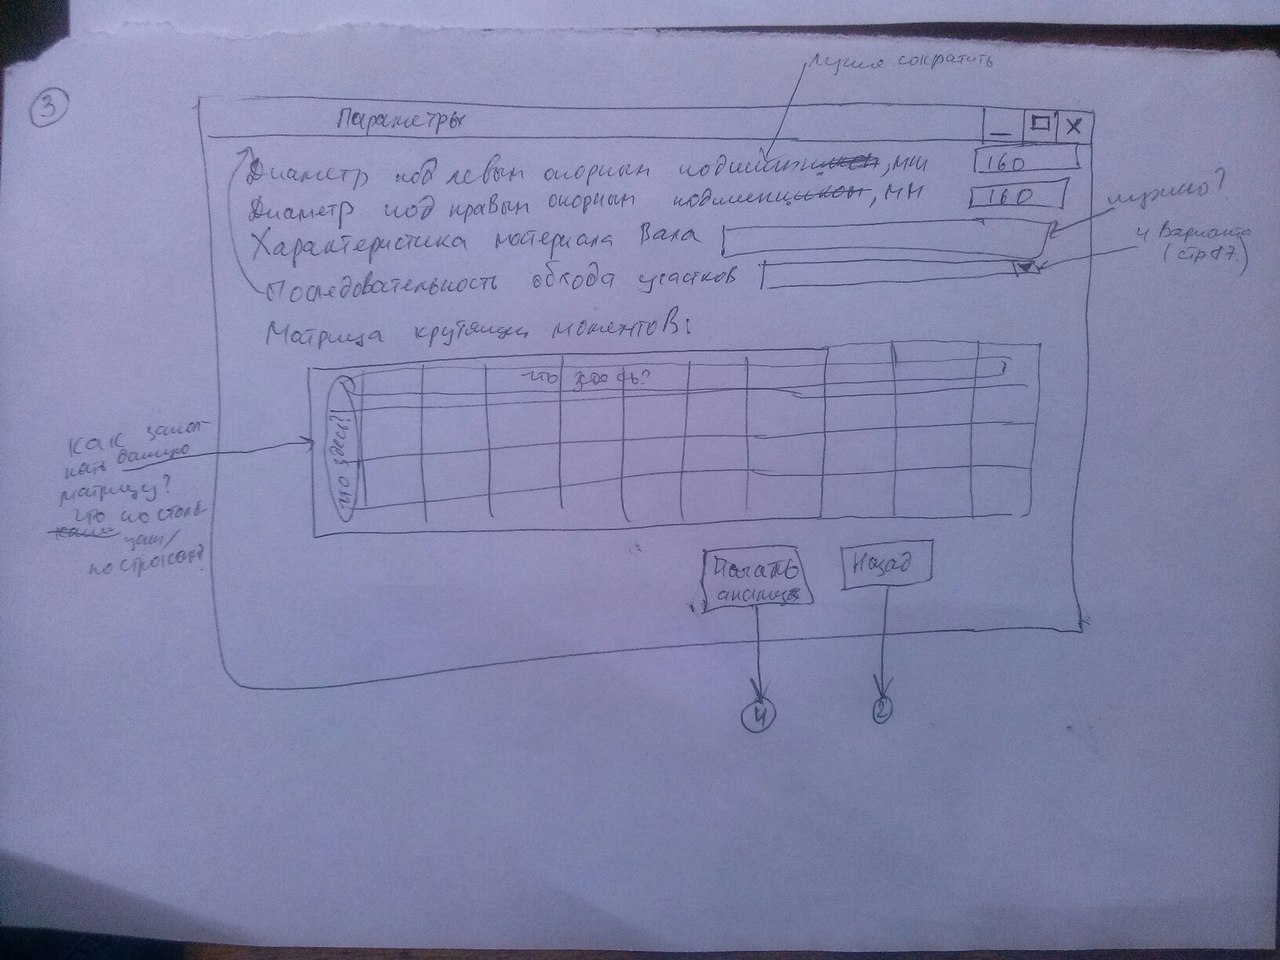 3
Лучше сократить
Параметры
Диаметр под левый опорный подшипник, мм 160
Диаметр под правый опорный подшипник, мм 160
Характеристика материала вала
нужно?
Последовательность обхода участков
4 варианта
(стр 17.)
Матрица крутящих моментов:
что здесь?
что здесь?!
Как запол-
нять данную
матрицу?
что по столб-
цам/
по строкам?
Начать
анализ
Назад
4
2